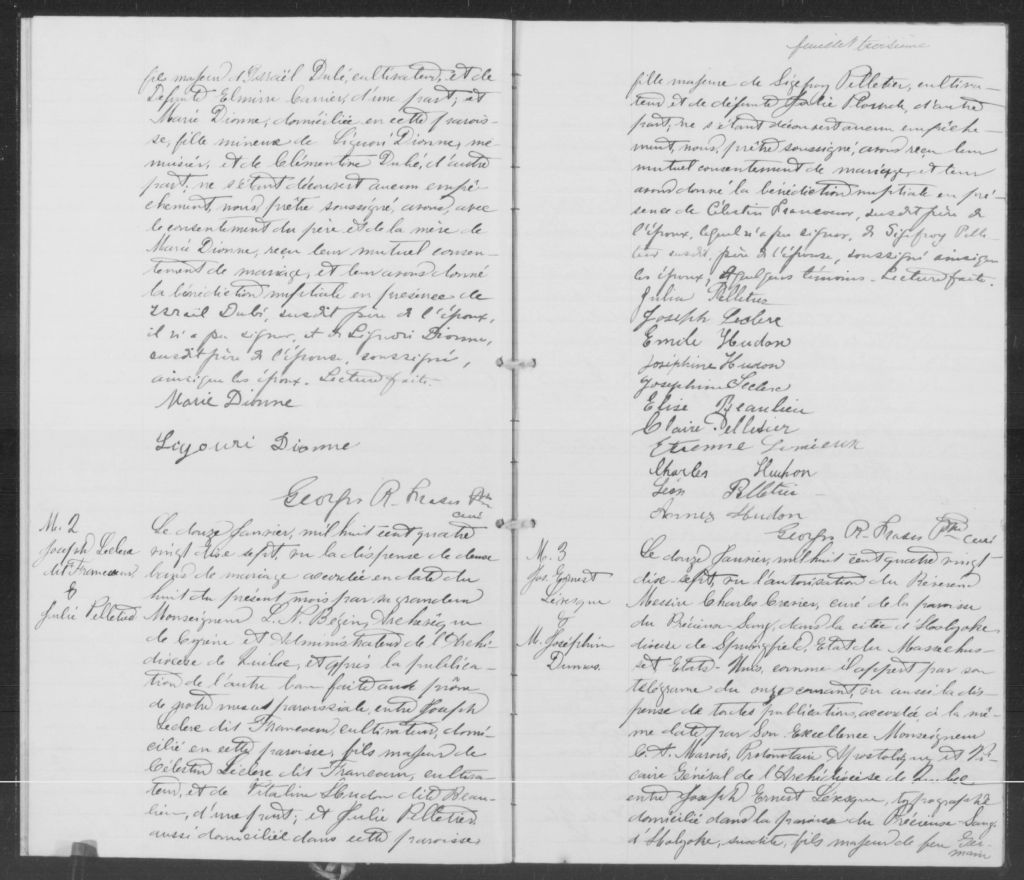 fils majeur d'Israël Dubé, cultivateur, et de
défunte Elmire Carrier, d'une part; et
Marie Dionne, domiciliée en cette parois-
se, fille mineure de Liguori Dionne, me
nuisier, et de Clémentine Dubé, d'autre
part; ne s'étant découvert aucun empê-
chement, nous, prêtre soussigné, avons, avec
le consentement du père et de la mère de
Marie Dionne, reçu leur mutuel consen-
tement de mariage, et leur avons donné
la bénédiction nuptiale en présence de
Israël Dubé, susdit père de l'époux,
il n'a pu signer, et de Liguori Dionne,
susdit père de l'épouse, soussigné,
ainsi que les époux. Lecture faite.
Marie Dionne
Ligouri Dionne
Georges R. Fraser Ptre
curé
M. 2
Joseph Leclerc
dit Francoeur
&
Julie Pelletier
Le douze Janvier, mil huit cent quatre
vingt dix sept, vu la dispense de deux
bans de mariage accordée en date du
huit du présent mois par sa grandeur
Monseigneur L. N. Bégin, Archevêque
de Cyrène et Administrateur de l'Archi-
diocèse de Québec, et après la publica-
tion de l'autre ban faite au prône
de notre messe paroissiale, entre Joseph
Leclerc dit Francoeur, cultivateur, domi-
cilié en cette paroisse, fils majeur de
Célestin Leclerc dit Francoeur, cultiva-
teur, et de Vitaline Hudon dite Beau-
lieu, d'une part; et Julie Pelletier
aussi domiciliée dans cette paroisse,
feuillet troisième
fille majeure de Sigefroy Pelletier, cultiva-
teur, et de défunte Julie Plourde, d'autre
part; ne s'étant découvert aucun empêche-
ment, nous, prêtre soussigné, avons reçu leur
mutuel consentement de mariage, et leur
avons donné la bénédiction nuptiale en pré-
sence de Célestin Francoeur, susdit père de
l'époux, lequel n'a pu signer, de Sigefroy Pelle-
tier susdit, père de l'épouse, soussigné ainsi que
les époux, & quelques témoins. Lecture faite.
Julia Pelletier
Joseph Leclerc
Emile Hudon
Josephine Hudon
Josephine Leclerc
Elise Beaulieu
Claire Pelletier
Etienne Lemieux
Charles Hudon
Léon Pelletier
Agnez Hudon
Georges R. Fraser Ptre curé
M. 3
Jos. Ernest
Lévesque
&
M. Joséphine
Dumas.
Le douze Janvier, mil huit cent quatre vingt
dix sept, vu l'autorisation du Révérend
Messire Charles Crevier, curé de la paroisse
du Précieux-Sang, dans la cité d'Holyoke,
diocèse de Springfield, Etat du Massachus-
set Etats-Unis, comme il appert par son
télégrame du onze courant, vu aussi la dis-
pense de toutes publications, accordée à la mê-
me date par Son Excellence Monseigneur
C. A. Marois, Protonotaire Apostolique, et Vi-
caire Général de l'Archidiocèse de Québec
entre Joseph Ernest Lévesque, typographe
domicilié dans la paroisse du Précieux-Sang,
d'Holyoke, susdite, fils majeur de feu Ger-
main